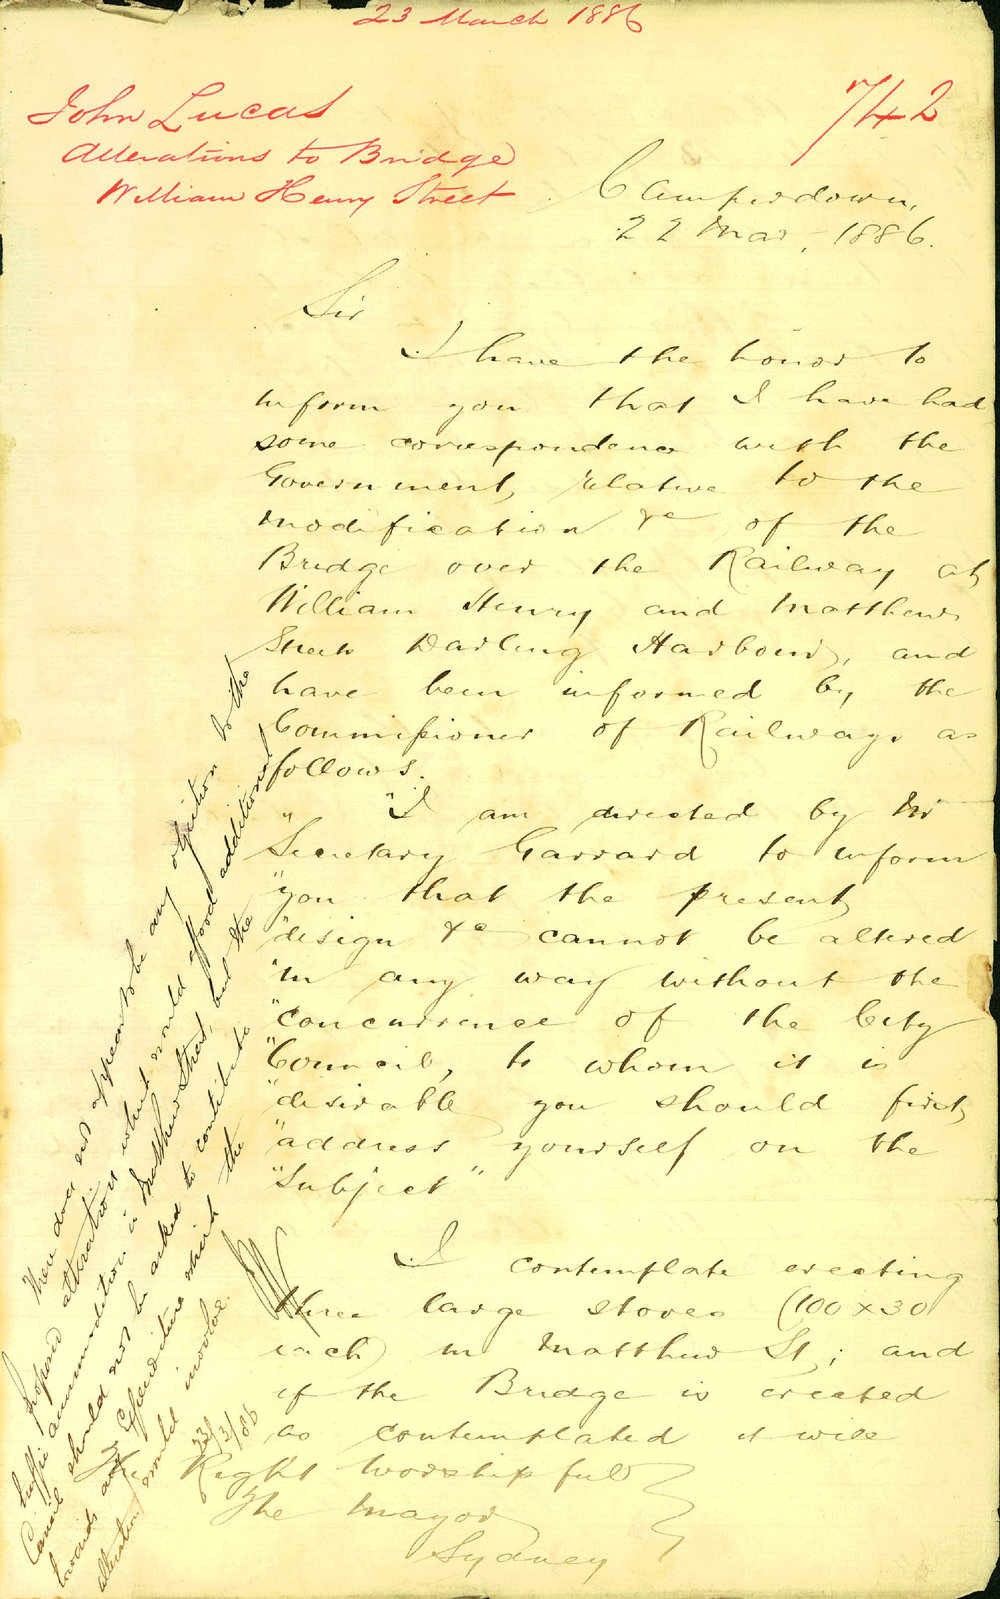 23 March 1886
742
John Lucas
Alterations to Bridge
William Henry Street
Camperdown,
22 Mar, 1886.
Sir
I have the honor to
inform you that I have had
some correspondence with the
Government, relative to the
modification &c of the
Bridge over the Railway at
William Henry and Matthew
Streets Darling Harbour, and
have been informed by the
Commissioner of Railways as
follows.
" "I am directed by Mr
"Secretary Garrard to inform
"you that the present
"design &c cannot be altered
"in any way without the
"concurrence of the City
"Council, to whom it is
"desirable you should first
"address yourself on the
"subject"
I contemplate erecting
three large stores (100 x 30
each) in Matthew St; and
if the Bridge is erected
as contemplated it will
The Right Worshipful
The Mayor
Sydney
There does not appear to be any objection to the
proposed alterations which would afford additional
traffic accommodation in Matthew Street, but the
Council should not be asked to contribute
towards any Expenditure which the
alteration would involve.
23/3/86